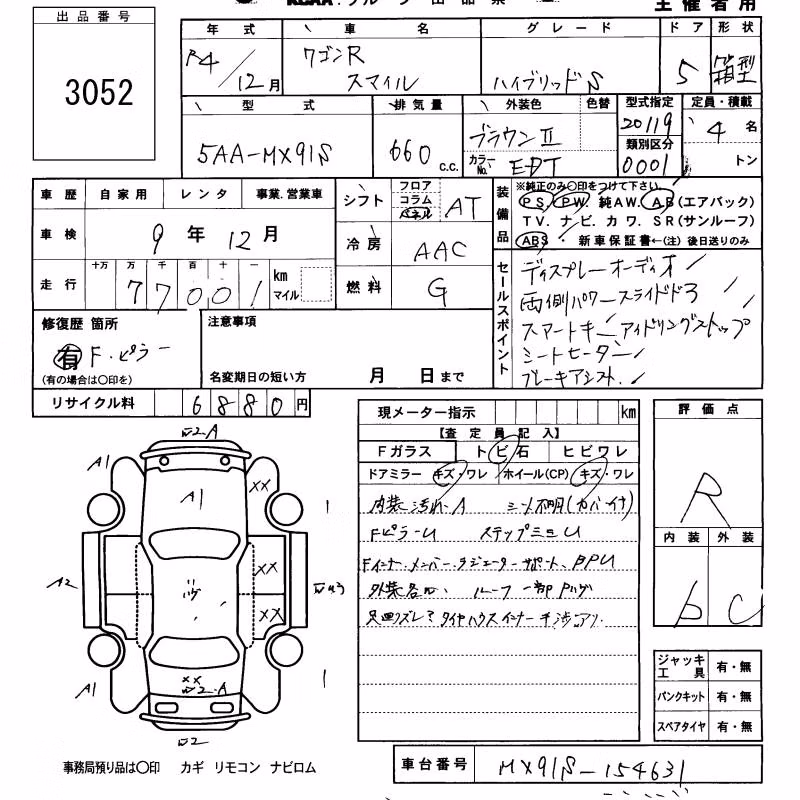 出品番号
3052
主催者用
年式 車名 グレード ドア 形状
R4/12月 ワゴンR スマイル ハイブリッドS 5 箱型
型式 排気量 外装色 色替 型式指定 定員・積載
5AA-MX91S 660 c.c. ブラウンⅡ 20119 4名
カラーNo. 類別区分
0001 トン
車歴 自家用 レンタ 事業.営業車
シフト フロア コラム パネル AT
装備品 ※純正のみ〇印をつけて下さい
PS. PW 純AW. AB(エアバック)
TV. ナビ. カワ. SR(サンルーフ)
ABS ・ 新車保証書←(注) 後日送りのみ
車検 9年12月
冷房 AAC
走行 十万 万 千 百 十 一
77001 km マイル
燃料 G
セールスポイント
ディスプレーオーディオ
両側パワースライドドア
スマートキー アイドリングストップ
シートヒーター
ブレーキアシスト.
修復歴 箇所
有 F・ピラー
(有の場合は〇印を)
注意事項
名変期日の短い方 月 日まで
リサイクル料 6880円
現メーター指示 km
【査定員記入】
Fガラス トビ石 ヒビワレ
ドアミラー キズ・ワレ ホイール(CP) キズ・ワレ
内装汚れ・A シート不明(カバー付)
Fピラーu ステップミニu
Fインナー.メンバー.ラジエーターサポート.
ルーフ一部
タイヤハウスインナー干渉アリ
評価点
R
内装 外装
b C
A1
A1
xx
1
xx
A2
xx
xx
A1
1
ジャッキ工具 有・無
パンクキット 有・無
スペアタイヤ 有・無
事務局預り品は〇印 カギ リモコン ナビロム
車台番号 MX91S-154631